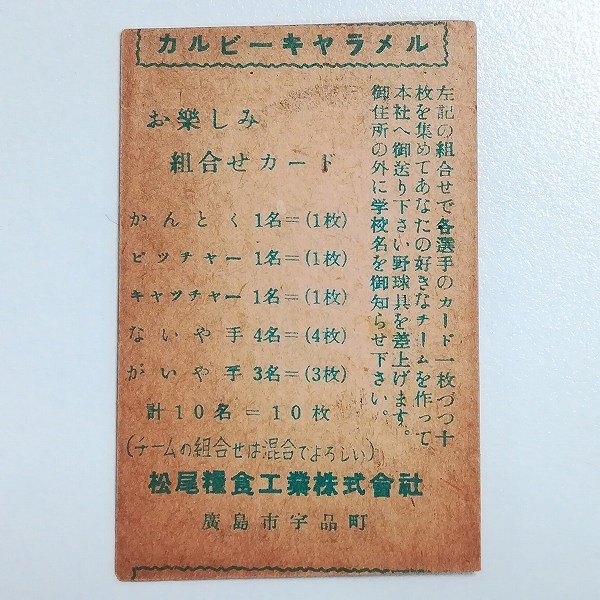 カルビーキヤラメル
お樂しみ
組合せカード
左記の組合せで各選手のカード一枚づつ十
枚を集めてあなたの好きなチームを作って
本社へ御送り下さい野球具を差上げます。
御住所の外に学校名を御知らせ下さい。
かんとく 1名＝(1枚)
ピツチャー 1名＝(1枚)
キャツチャー 1名＝(1枚)
ないや手 4名＝(4枚)
がいや手 3名＝(3枚)
計10名＝10枚
(チームの組合せは混合でよろしい)
松尾糧食工業株式會社
廣島市宇品町